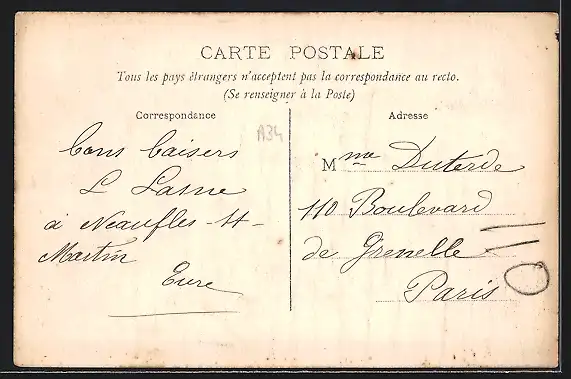 CARTE POSTALE
Tous les pays étrangers n'acceptent pas la correspondance au recto.
(Se renseigner à la Poste)
Correspondance
A34
bons baisers
L Lasne
à Neaufles-St-
Martin
Eure
Adresse
Mme Duterde
110 Boulevard
de Grenelle
Paris